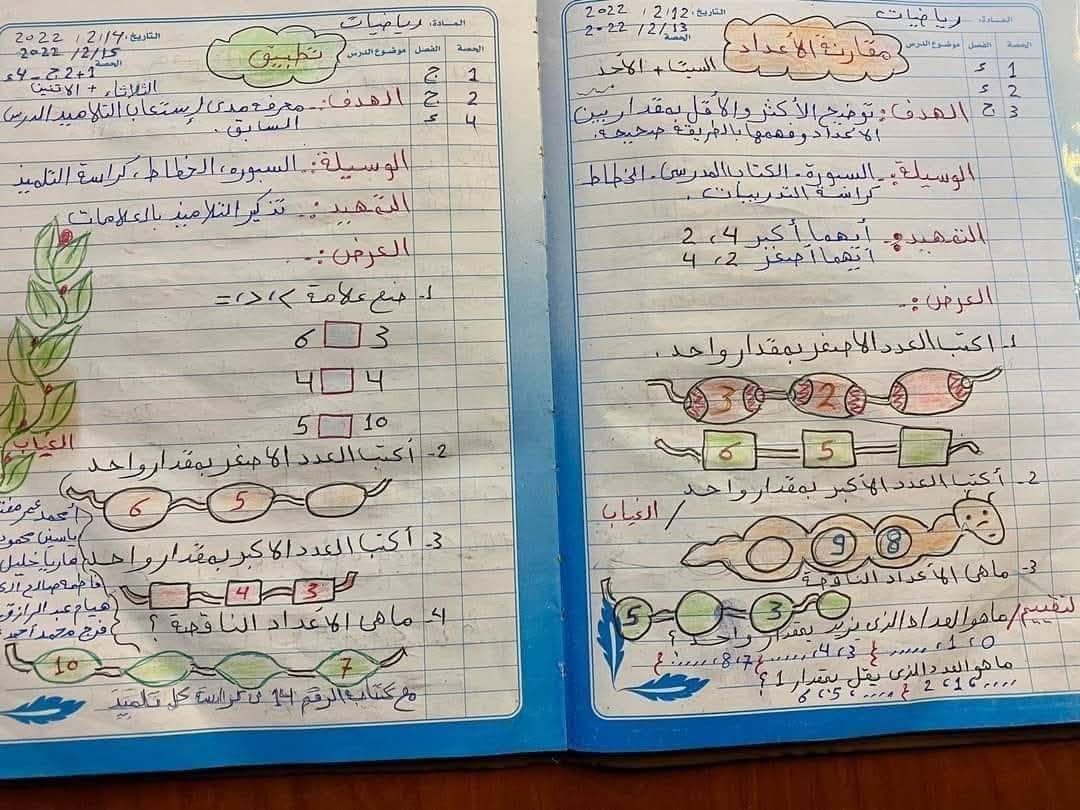 المادة: رياضيات
التاريخ: 12 / 2 / 2022
13 / 2 / 2022
الحصة
الحصة الفصل موضوع الدرس
مقارنة الأعداد
السبت + الأحد
1 ء
2 ء
3 ج
الهدف:- توضيح الأكثر والأقل بمقدار بين
الأعداد وفهمها بالطريقة صحيحة.
الوسيلة:- السبورة. الكتاب المدرسي. الخطاط
كراسة التدريبات.
التمهيد:- أيهما أكبر 4، 2
أيهما أصغر 2، 4
العرض:-
1- اكتب العدد الاصغر بمقدار واحد.
3 2
6 5
2- أكتب العدد الأكبر بمقدار واحد
الغياب /
9 8
3- ماهي الأعداد الناقصة
5 3
لتقييم / ماهو العدد الذي يزيد بمقدار واحد؟
0، 1، ..... } 3، 4، ..... } 7، 8، ..... }
ماهو العدد الذي يقل بمقدار 1؟
....، 1، 2 } ....، 5، 6
المادة: رياضيات
التاريخ: 14 / 2 / 2022
15 / 2 / 2022
الحصة
الحصة الفصل موضوع الدرس
تطبيق
1+2 ج - 4ء
الثلاثاء + الاتنين
1 ج
2 ج
4 ء
الهدف:- معرفة مدى إستعاب التلاميد الدرس
السابق.
الوسيلة:- السبوره، الخطاط، كراسة التلميذ
التمهيد:- تذكير التلاميذ بالعلامات
العرض:-
1- ضع علامة >، <، =
6 3
4 4
5 10
2- أكتب العدد الاصغر بمقدار واحد
الغياب
6 5
3- أكتب العدد الاكبر بمقدار واحد
4 3
4- ماهي الأعداد الناقصة؟
10 7
مع كتابة الرقم 14 في كراسة كل تلميذ
أحمد عمر
ياسين محمود
ماريا خليل
فاطمة صالح
هيام عبد الرازق
فرج محمد احمد